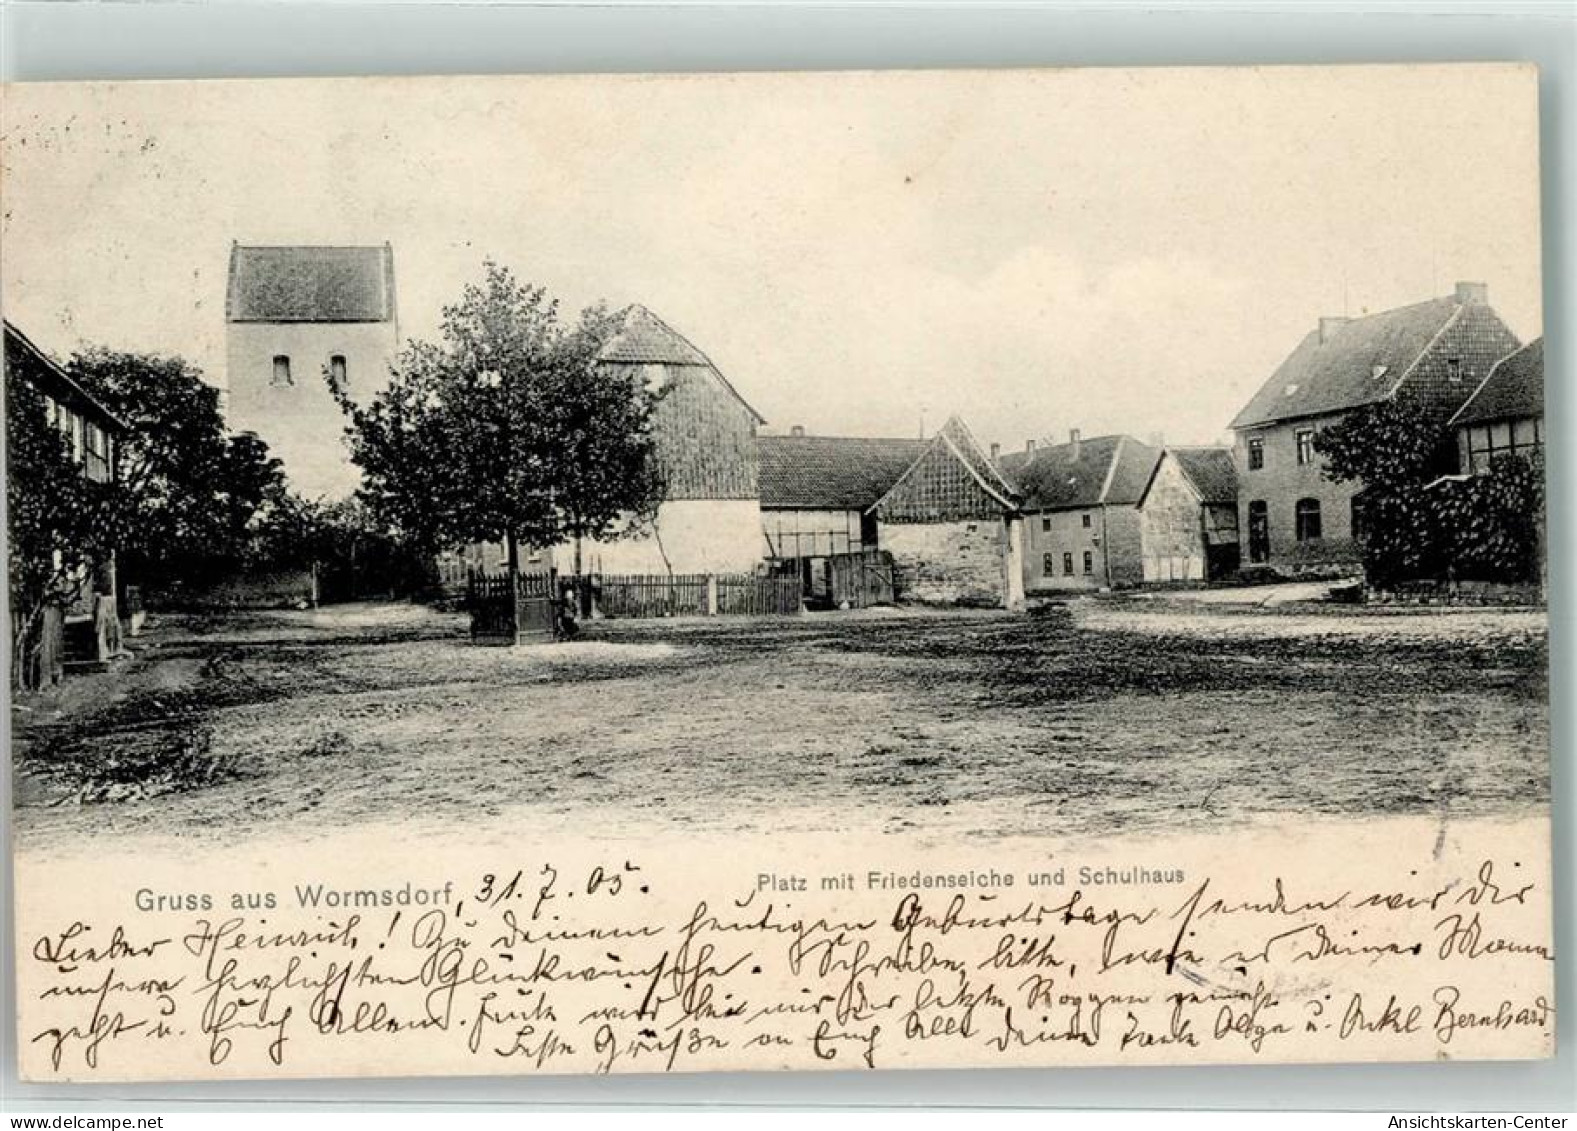 Gruss aus Wormsdorf, 31.7.05.
Platz mit Friedenseiche und Schulhaus
Lieber Heinrich! Zu Deinem heutigen Geburtstage senden wir Dir
unsere herzlichsten Glückwünsche. Schreibe, bitte, wie es Deiner Mama
geht u. Euch Allen. Heute wird bei uns der letzte Roggen gemäht.
Feste Grüße an Euch Alle Deine Tante Olga u. Onkel Bernhard.
Ansichtskarten-Center